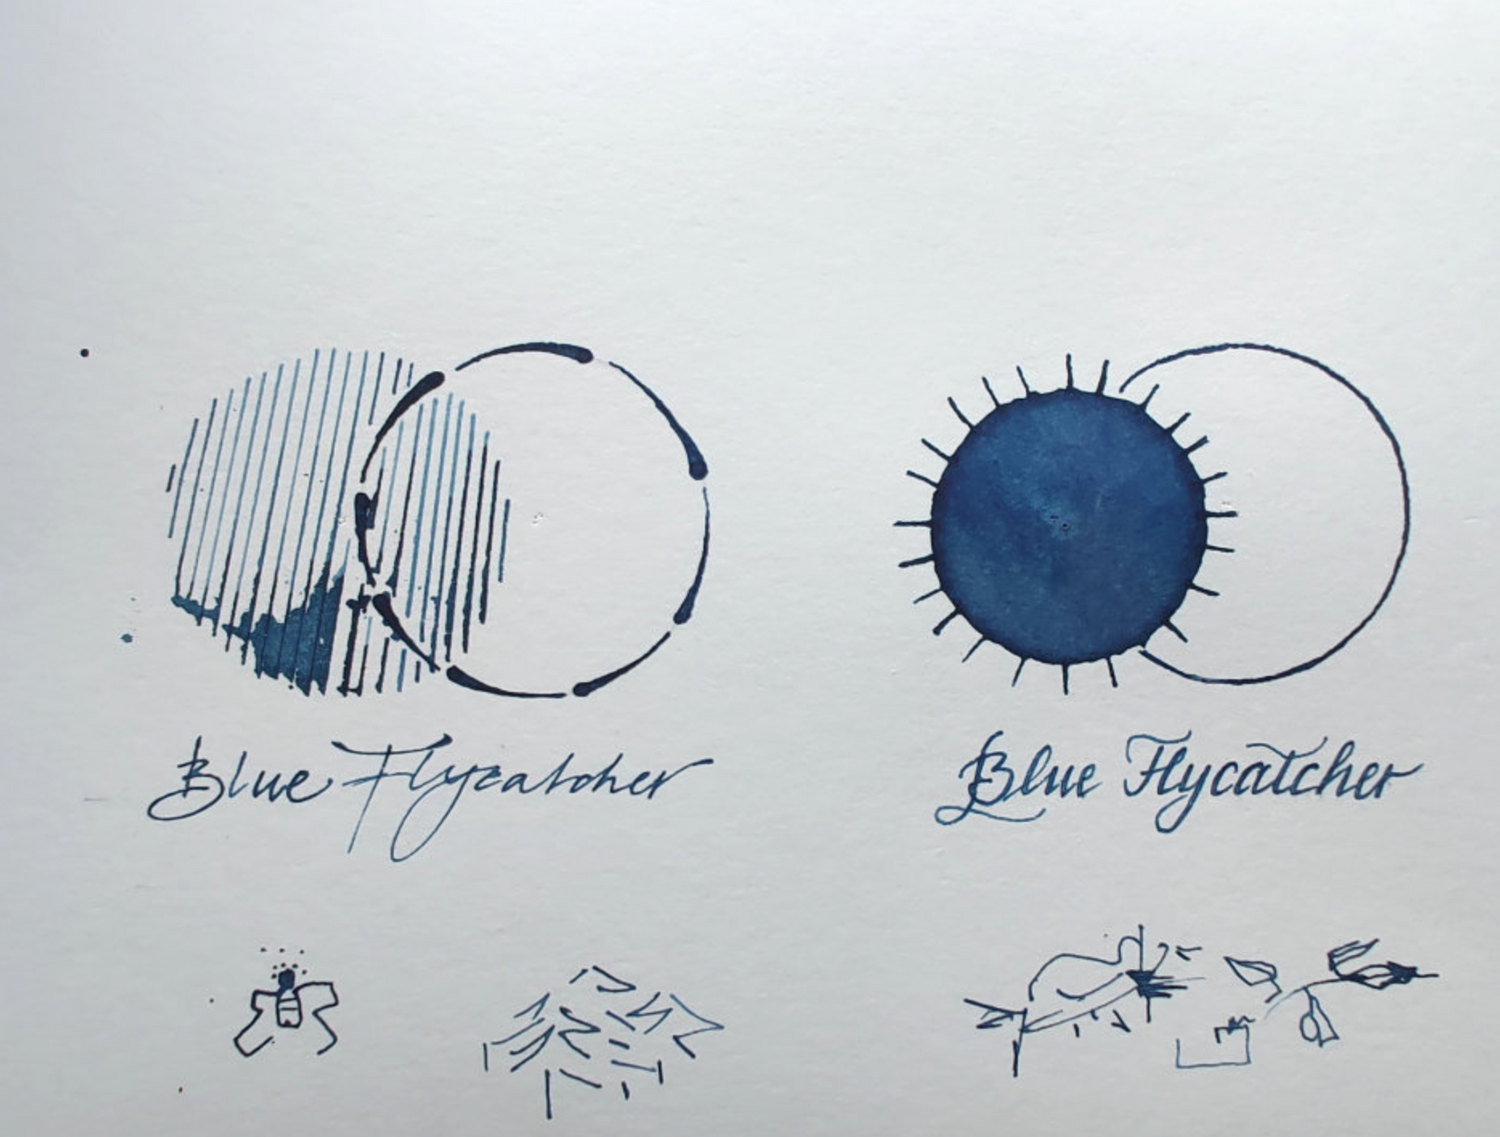 Blue Flycatcher
Blue Flycatcher